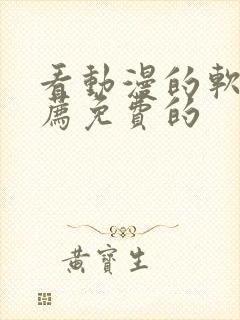 看動漫的軟
薦免費的
黃寶生